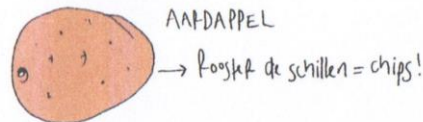 AARDAPPEL
→ Rooster de schillen = chips!